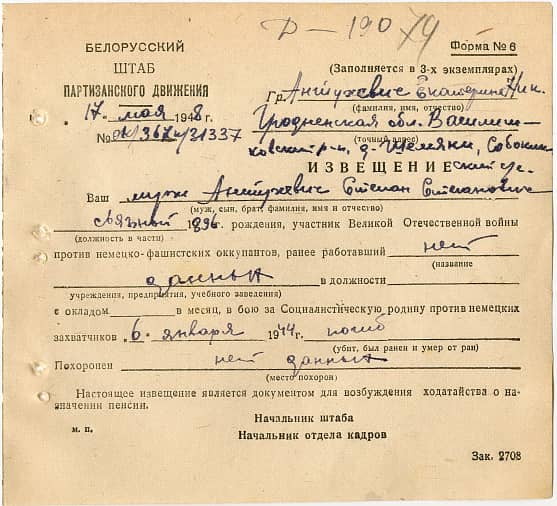 Р-190 79
БЕЛОРУССКИЙ
ШТАБ
ПАРТИЗАНСКОГО ДВИЖЕНИЯ
Форма № 6
(Заполняется в 3-х экземплярах)
17 мая 1948 г.
Гр. Антухевич Екатерине Ник.
(фамилия, имя, отчество)
№ 31337
Гродненская обл. Василиш-
(точный адрес)
ковский р-н, д. Шемяки, Собакин-
ИЗВЕЩЕНИЕ ский с/с.
Ваш муж Антухевич Степан Степанович
(муж, сын, брат, фамилия, имя и отчество)
связной 1896 г. рождения, участник Великой Отечественной войны
(должность в части)
против немецко-фашистских оккупантов, ранее работавший нет
(название
данных в должности
учреждения, предприятия, учебного заведения)
с окладом в месяц, в бою за Социалистическую родину против немецких
захватчиков 6 января 1944 г. погиб
(убит, был ранен и умер от ран)
Похоронен нет данных
(место похорон)
Настоящее извещение является документом для возбуждения ходатайства о на-
значении пенсии.
Начальник штаба
м. п.
Начальник отдела кадров
Зак. 2708